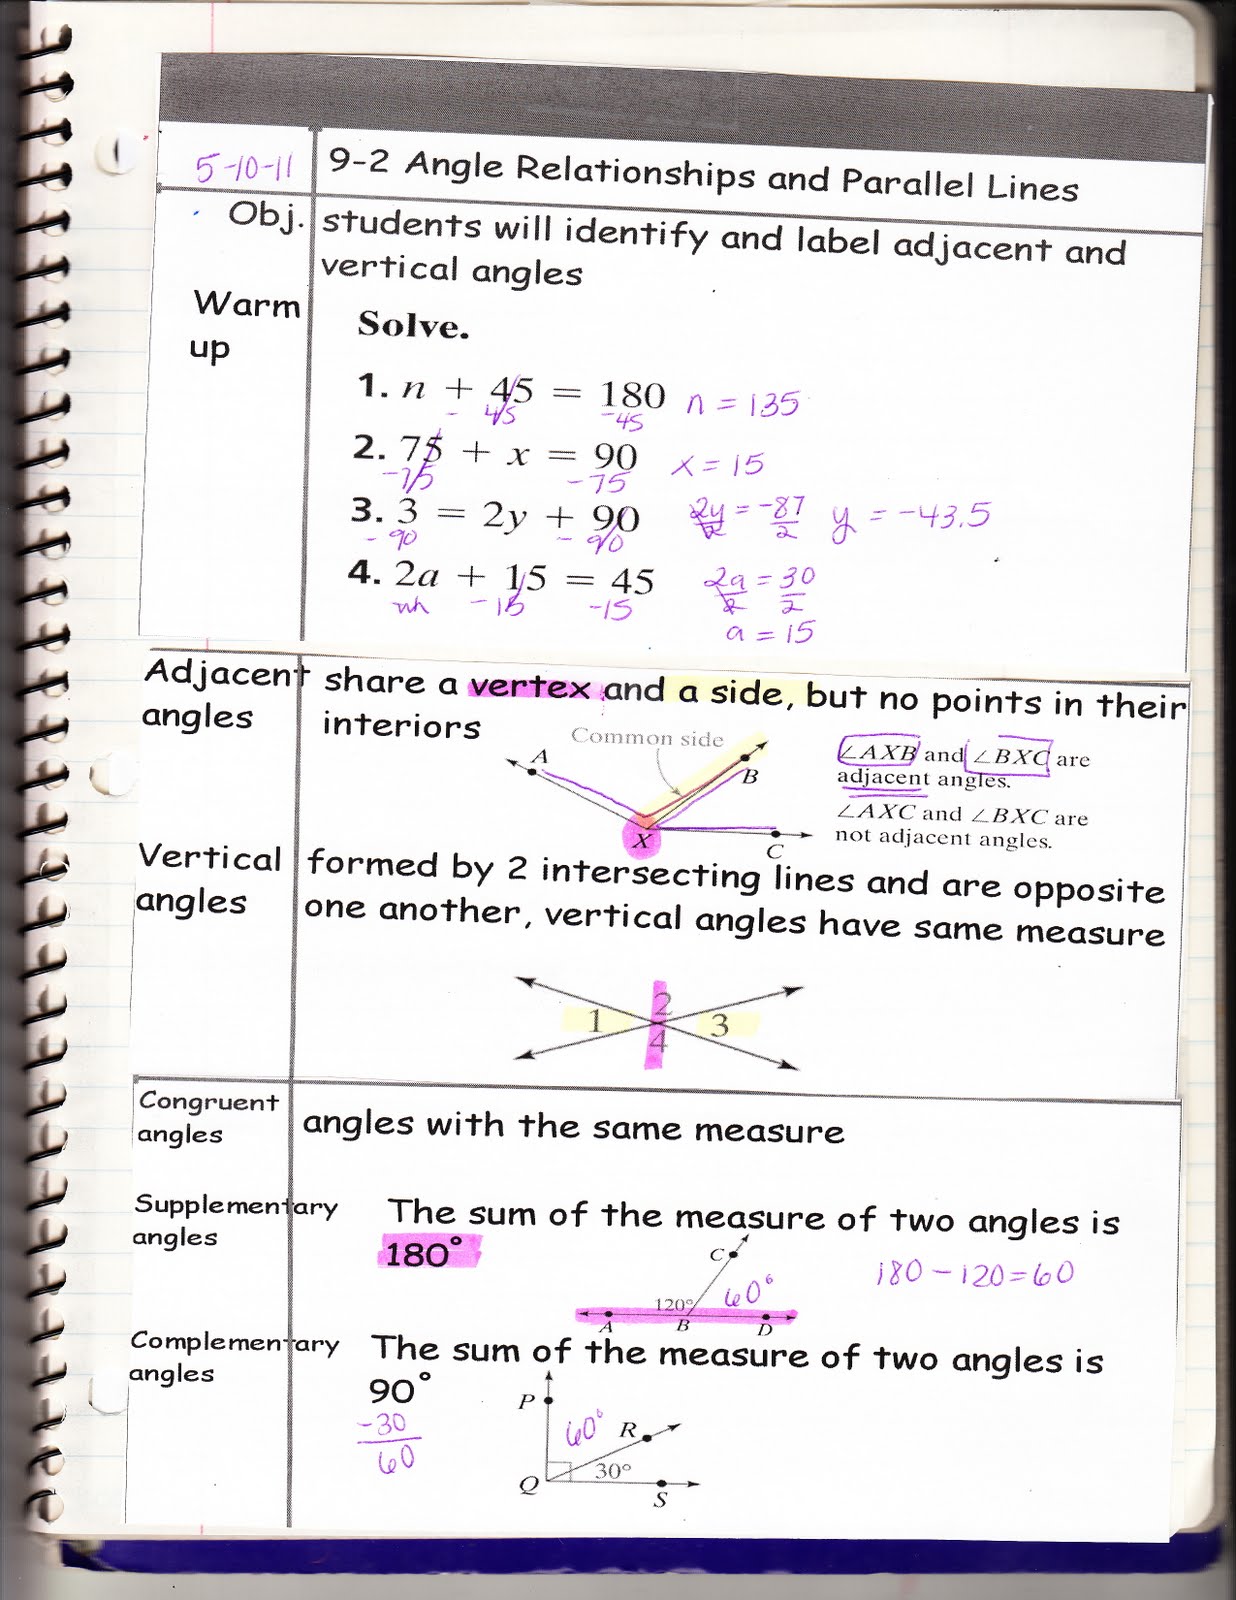 5-10-11 9-2 Angle Relationships and Parallel Lines
Obj. students will identify and label adjacent and
vertical angles
Warm
up
Solve.
1. n + 45 = 180 n = 135
- 45 -45
2. 75 + x = 90 x = 15
-75 -75
3. 3 = 2y + 90 2y/2 = -87/2 y = -43.5
- 90 - 90
4. 2a + 15 = 45 2a/2 = 30/2
-15 -15
a = 15
Adjacent share a vertex and a side, but no points in their
angles interiors
Common side
A
B
X
C
∠AXB and ∠BXC are
adjacent angles.
∠AXC and ∠BXC are
not adjacent angles.
Vertical formed by 2 intersecting lines and are opposite
angles one another, vertical angles have same measure
2
1 3
4
Congruent
angles
angles with the same measure
Supplementary
angles
The sum of the measure of two angles is
180°
C
120° 60°
A B D
180 - 120 = 60
Complementary
angles
The sum of the measure of two angles is
90°
-30
60
P
60° R
30°
Q
S